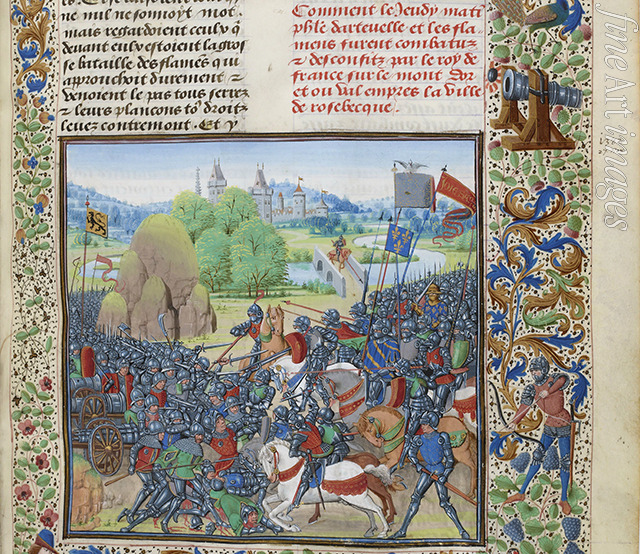 ne nul ne sonnoyt mot.
mais regardoient ceulx q̃
deuant eulx estoient la gros
se bataille des flamẽs qui
approuchoit durement ⁊
venoient le pas tous serrez
⁊ leurs plancons toꝰ droitz
leuez contremont. Et y
Comment le Jeudy mati
phl̃e dartevelle et les fla
mens furent combatuz
⁊ desconfitz par le roy de
france sur le mont dor
et ou val empres la ville
de rosebecque.
fine Art images